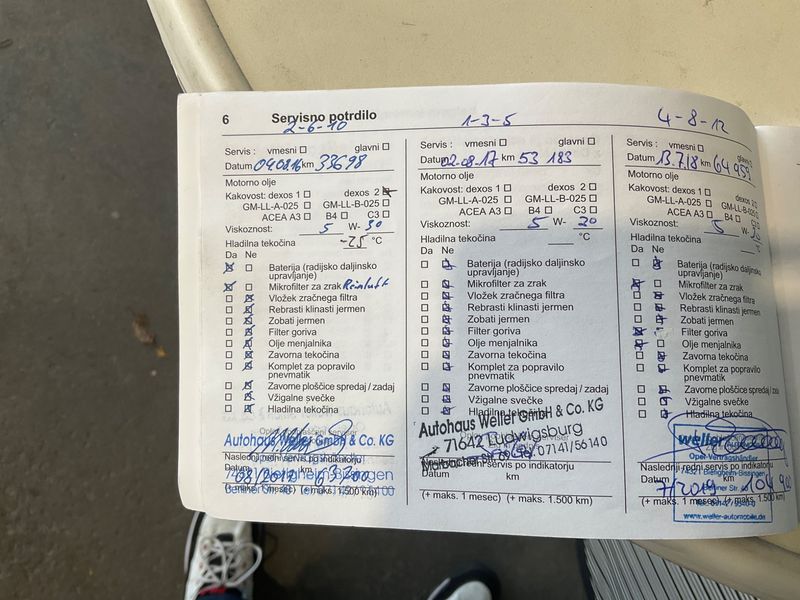 6 Servisno potrdilo
2-6-10
Servis : vmesni □ glavni □
Datum 04.08.16 km 33698
Motorno olje
Kakovost: dexos 1 □ dexos 2
GM-LL-A-025 □ GM-LL-B-025 □
ACEA A3 □ B4 □ C3 □
Viskoznost: 5 W- 30
Hladilna tekočina -25 °C
Da Ne
Baterija (radijsko daljinsko
upravljanje)
Mikrofilter za zrak Reinluft
Vložek zračnega filtra
Rebrasti klinasti jermen
Zobati jermen
Filter goriva
Olje menjalnika
Zavorna tekočina
Komplet za popravilo
pnevmatik
Zavorne ploščice spredaj / zadaj
Vžigalne svečke
Hladilna tekočina
Autohaus Weller GmbH & Co. KG
Naslednji redni servis po indikatorju
Datum km
Bietigheim-Bissingen
63200
(+ maks. 1 mesec) (+ maks. 1.500 km)
1-3-5
Servis : vmesni □ glavni □
Datum 02.08.17 km 53 183
Motorno olje
Kakovost: dexos 1 □ dexos 2 □
GM-LL-A-025 □ GM-LL-B-025 □
ACEA A3 □ B4 □ C3 □
Viskoznost: 5 W- 30
Hladilna tekočina °C
Da Ne
Baterija (radijsko daljinsko
upravljanje)
Mikrofilter za zrak
Vložek zračnega filtra
Rebrasti klinasti jermen
Zobati jermen
Filter goriva
Olje menjalnika
Zavorna tekočina
Komplet za popravilo
pnevmatik
Zavorne ploščice spredaj / zadaj
Vžigalne svečke
Hladilna tekočina
Autohaus Weller GmbH & Co. KG
71642 Ludwigsburg
Marbacher Str. 07141/56140
Naslednji redni servis po indikatorju
Datum km
(+ maks. 1 mesec) (+ maks. 1.500 km)
4-8-12
Servis : vmesni □ glavni
Datum 13.7.18 km 64 959
Motorno olje
Kakovost: dexos 1 □ dexos 2
GM-LL-A-025 □ GM-LL-B-025
ACEA A3 □ B4 □ C3
Viskoznost: 5 W- 30
Hladilna tekočina
Da Ne
Baterija (radijsko daljinsko
upravljanje)
Mikrofilter za zrak
Vložek zračnega filtra
Rebrasti klinasti jermen
Zobati jermen
Filter goriva
Olje menjalnika
Zavorna tekočina
Komplet za popravilo
pnevmatik
Zavorne ploščice spredaj / zadaj
Vžigalne svečke
Hladilna tekočina
weller
Opel-Vertragshändler
Naslednji redni servis po indikatorju
74321 Bietigheim-Bissingen
Datum km
7/2019
(+ maks. 1 mesec) (+ maks. 1.500 km)
www.weller-automobile.de